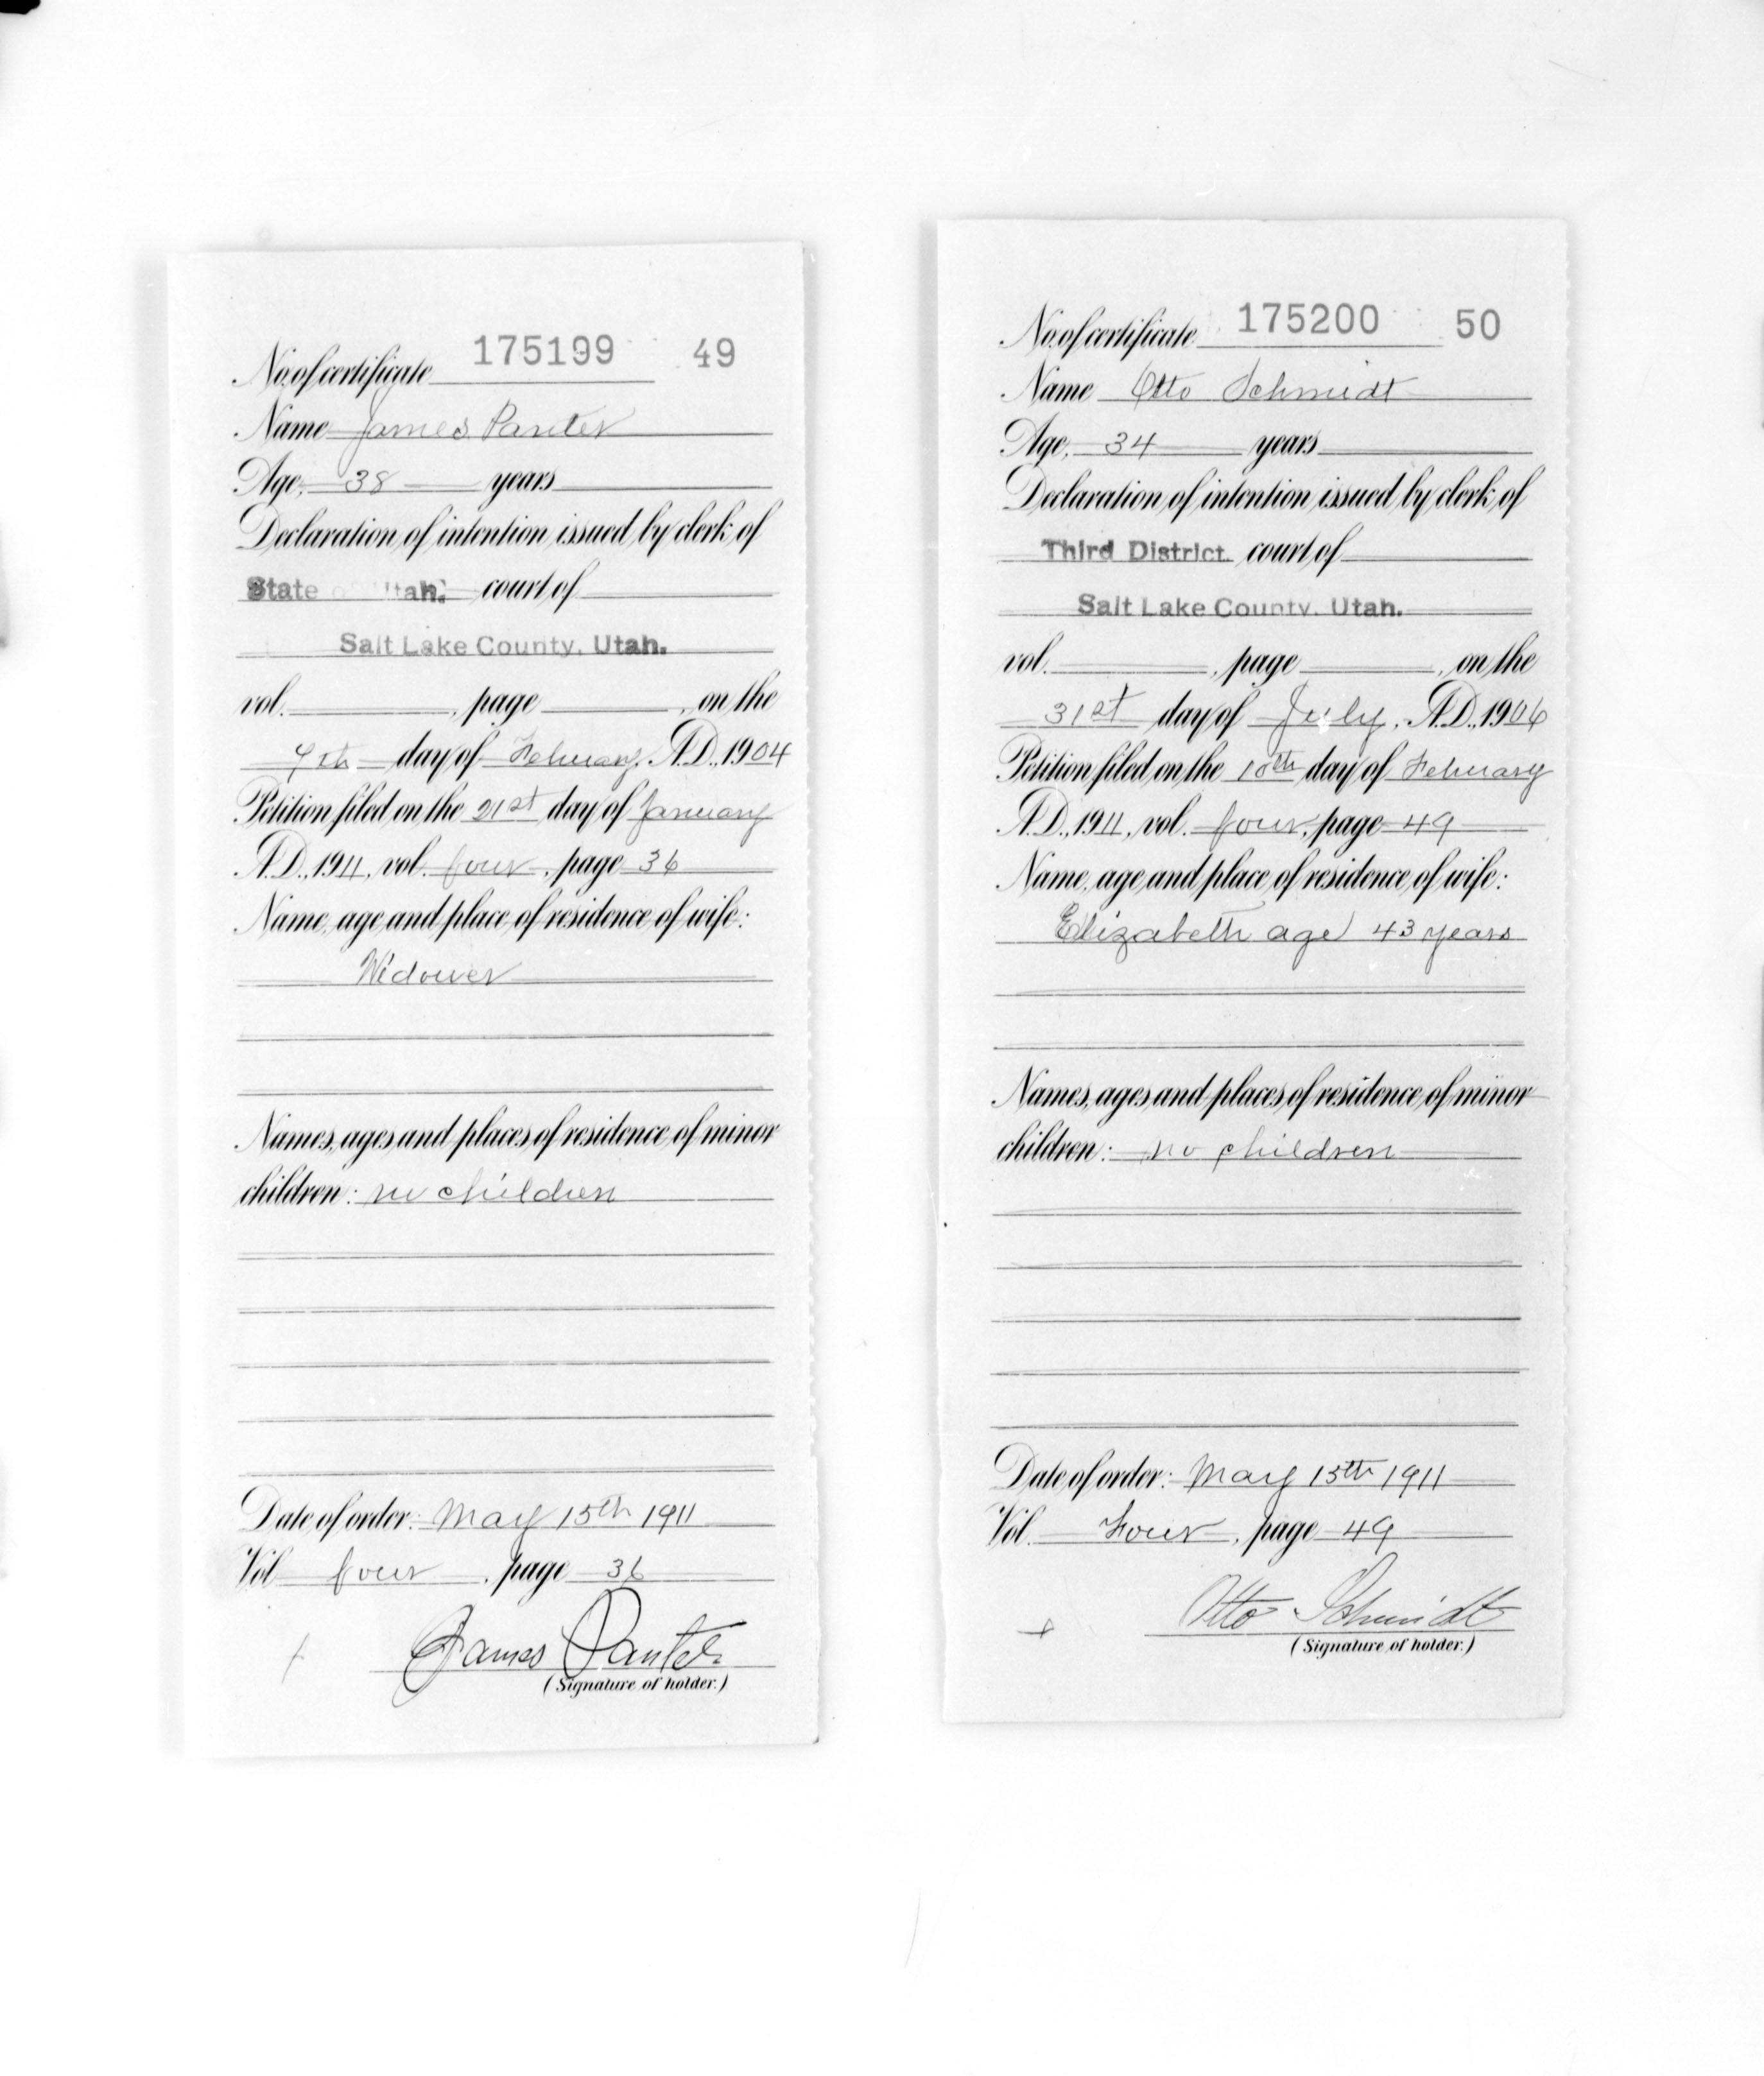 No. of certificate 175199 49
Name James Panter
Age, 38 years
Declaration of intention issued by clerk of
State of Utah. court of
Salt Lake County, Utah.
vol. , page , on the
9th day of February, A.D., 1904
Petition filed on the 21st day of January
A.D., 1911, vol. four, page 36
Name, age and place of residence of wife:
Widower
Names, ages and places of residence of minor
children: no children
Date of order: May 15th 1911
Vol four, page 36
James Panter
(Signature of holder.)
No. of certificate 175200 50
Name Otto Schmidt
Age, 34 years
Declaration of intention issued by clerk of
Third District. court of
Salt Lake County, Utah.
vol. , page , on the
31st day of July, A.D., 1906
Petition filed on the 10th day of February
A.D., 1911, vol. four, page 49
Name, age and place of residence of wife:
Elizabeth age 43 years
Names, ages and places of residence of minor
children: no children
Date of order: May 15th 1911
Vol. Four, page 49
Otto Schmidt
(Signature of holder.)